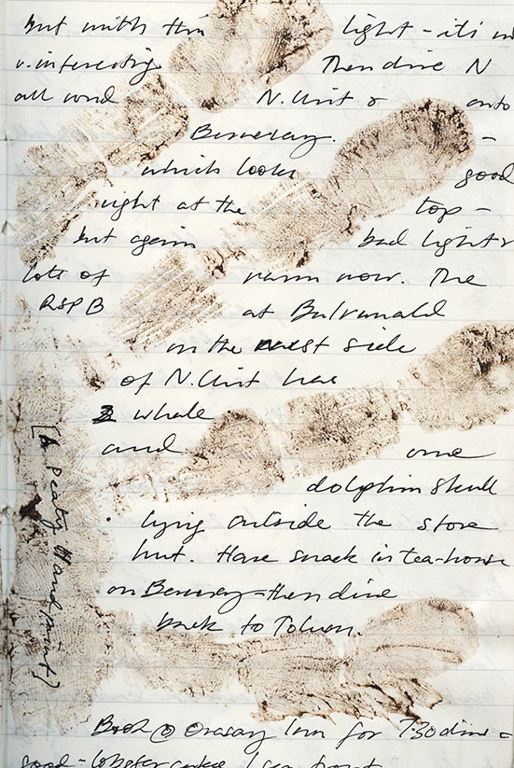 but with this light - it's
v. interesting Then dive N
all and N. Uist & onto
Berneray. -
which looks good
right at the top -
but again bad light &
lots of now. The
RSPB at Balranald
on the west side
of N. Uist has
2 whale
and one
dolphin skull
lying outside the stone
hut. Have snack in tea-house
on Berneray - then dive
back to Tolum.
[A Peaty Handprint]
Back @ Orasay Inn for 730 dine -
good - lobster